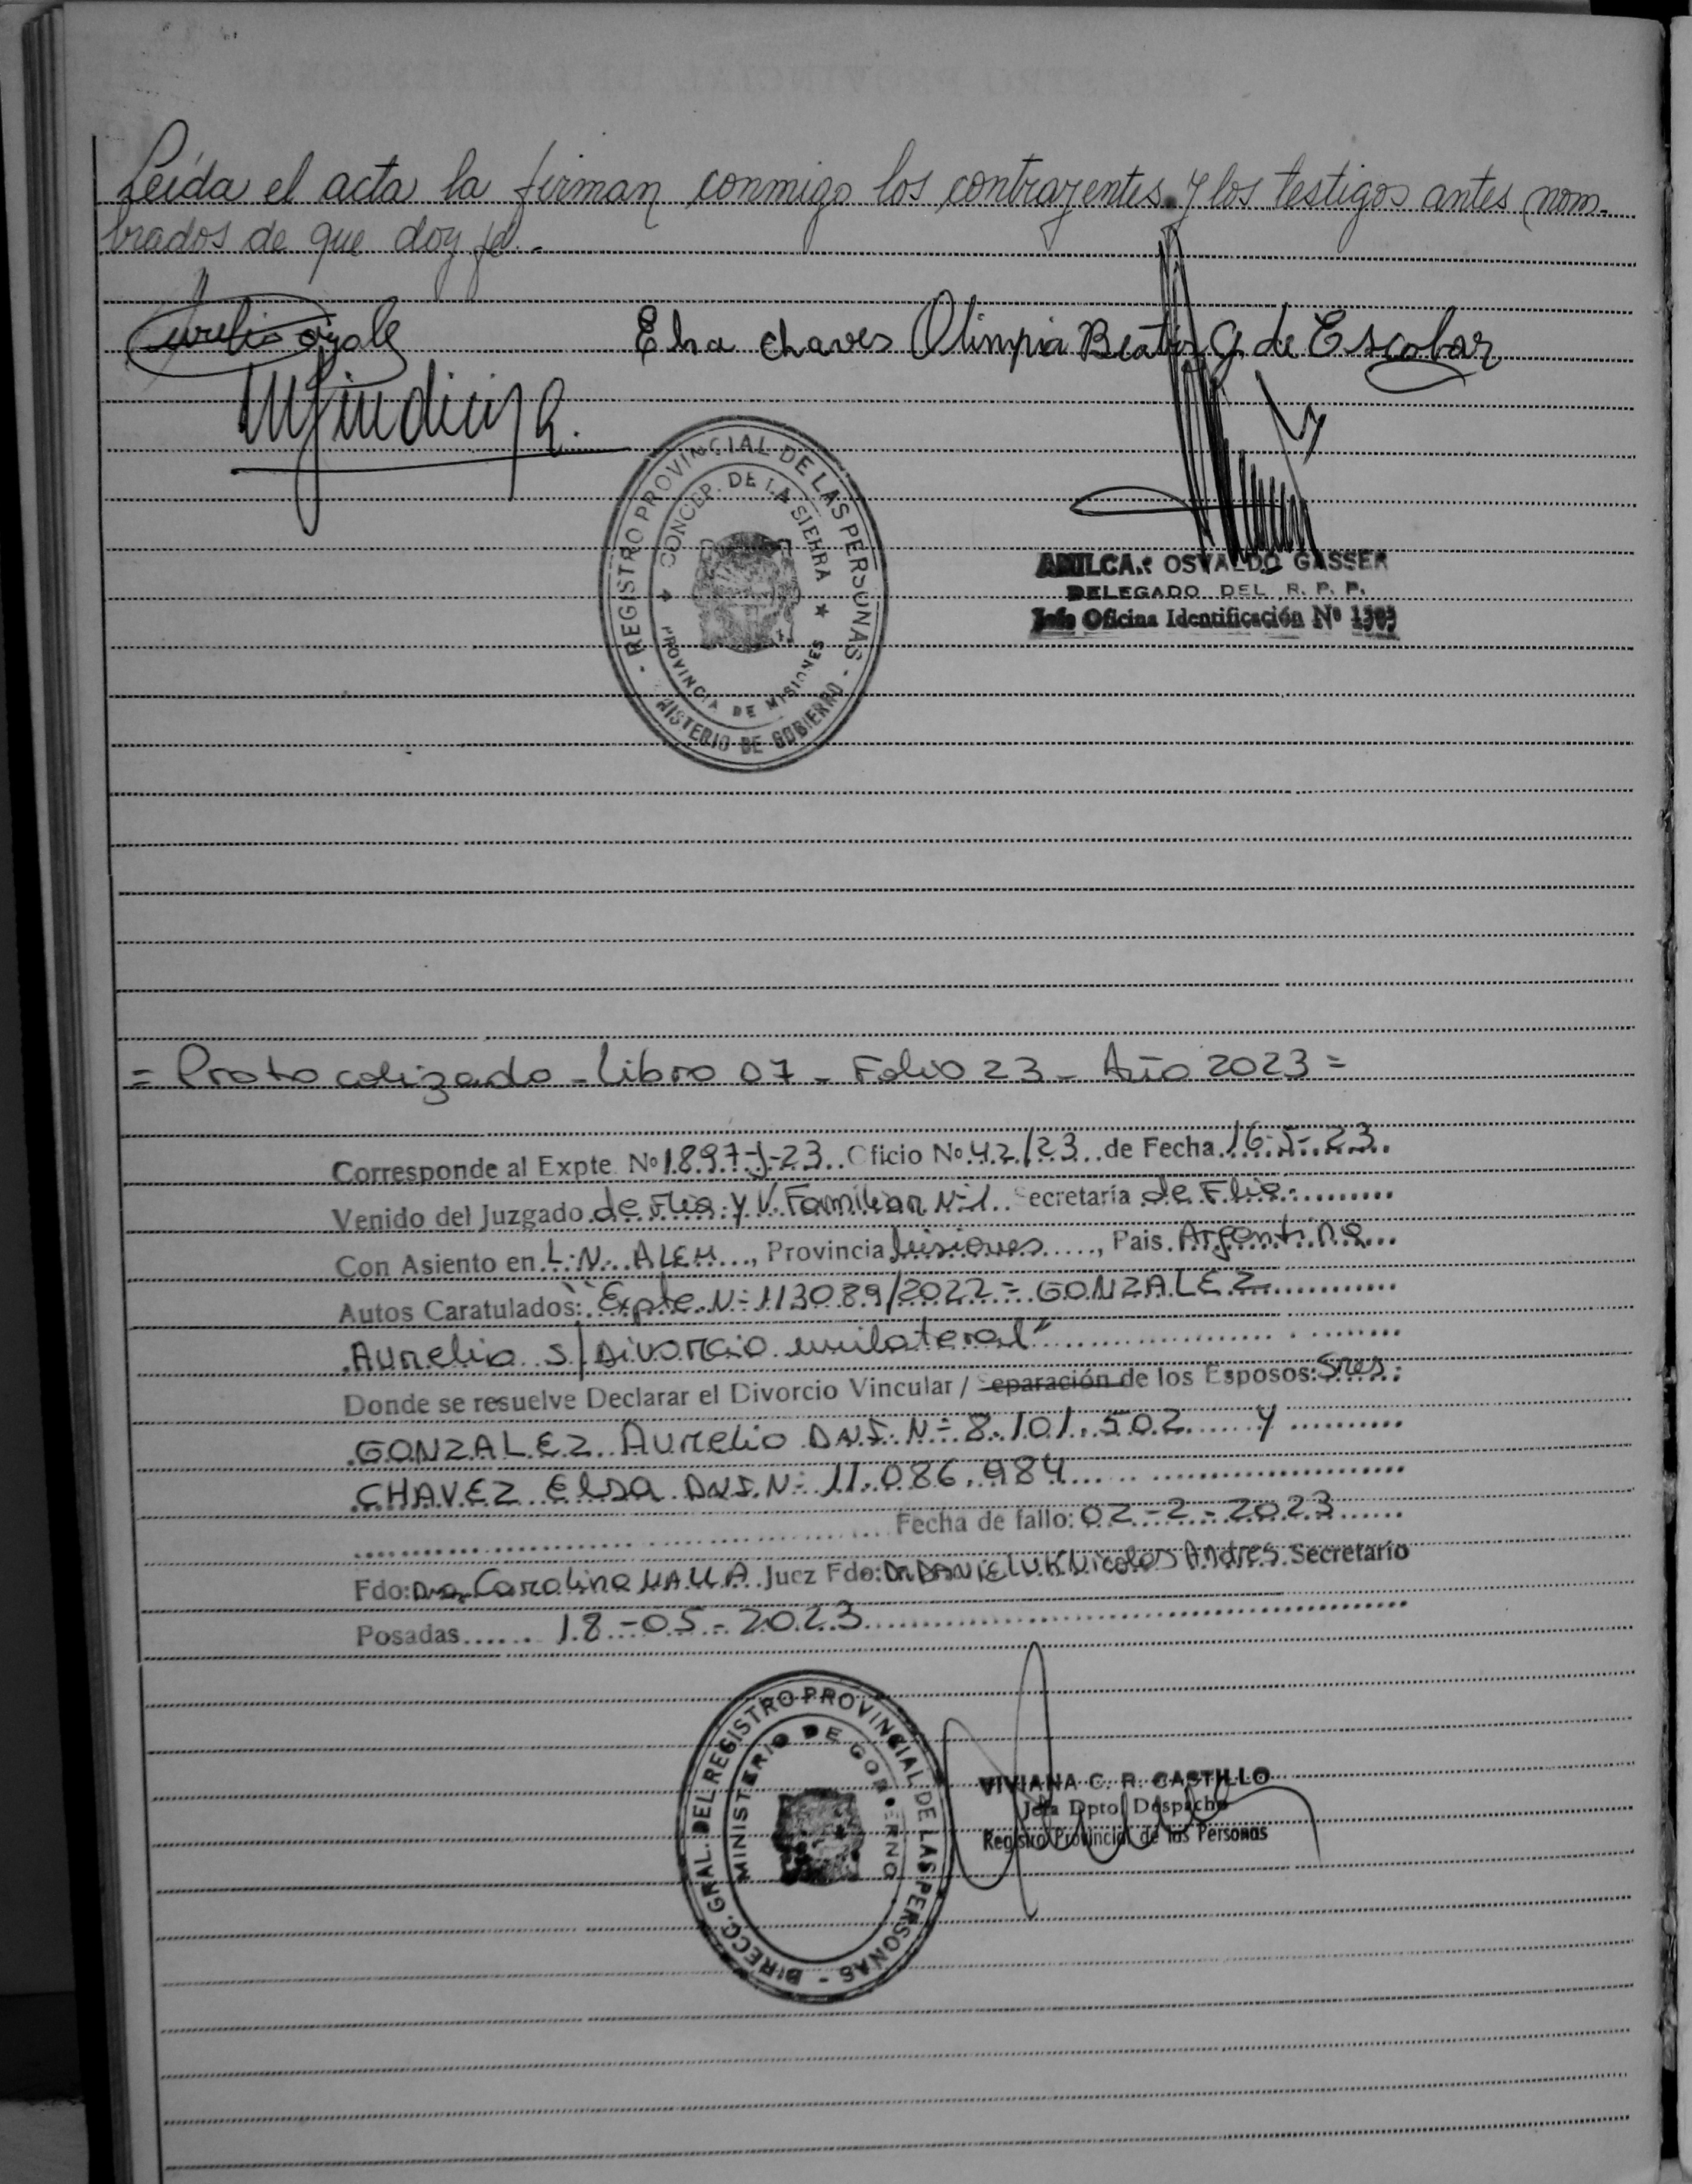 Leída el acta la firman conmigo los contrayentes y los testigos antes nom-
brados de que doy fé.-
Elsa chaves Olimpia Beatriz G. de Escobar
REGISTRO PROVINCIAL DE LAS PERSONAS
CONCEP. DE LA SIERRA
PROVINCIA DE MISIONES
NISTERIO DE GOBIERNO
OSVALDO GASSER
DELEGADO DEL R. P. P.
Jefe Oficina Identificación Nº 1303
= Protocolizado - Libro 07 - Folio 23 - Año 2023 =
Corresponde al Expte. Nº 1897-J-23. Oficio Nº 42/23 de Fecha 16-5-23.
Venido del Juzgado de Flia y V. Familiar Nº 1. Secretaría de Flia.
Con Asiento en L. N. ALEM, Provincia Misiones, Pais Argentina
Autos Caratulados: "Expte. Nº 113089/2022 = GONZALEZ
Aurelio s/ Divorcio unilateral"
Donde se resuelve Declarar el Divorcio Vincular / Separación de los Esposos: Sres.
GONZALEZ Aurelio D.N.I. Nº 8.101.502 y
CHAVEZ Elsa D.N.I. Nº 11.086.984
Fecha de fallo: 02-2-2023
Fdo: Dra. Carolina Juez Fdo: Dr. DANIELUK Nicolas Andres Secretario
Posadas 18-05-2023
DIRECC. GRAL. DEL REGISTRO PROVINCIAL DE LAS PERSONAS
MINISTERIO DE GOBIERNO
VIVIANA C. R. CASTILLO
Jefa Dpto. Despacho
Registro Provincial de las Personas